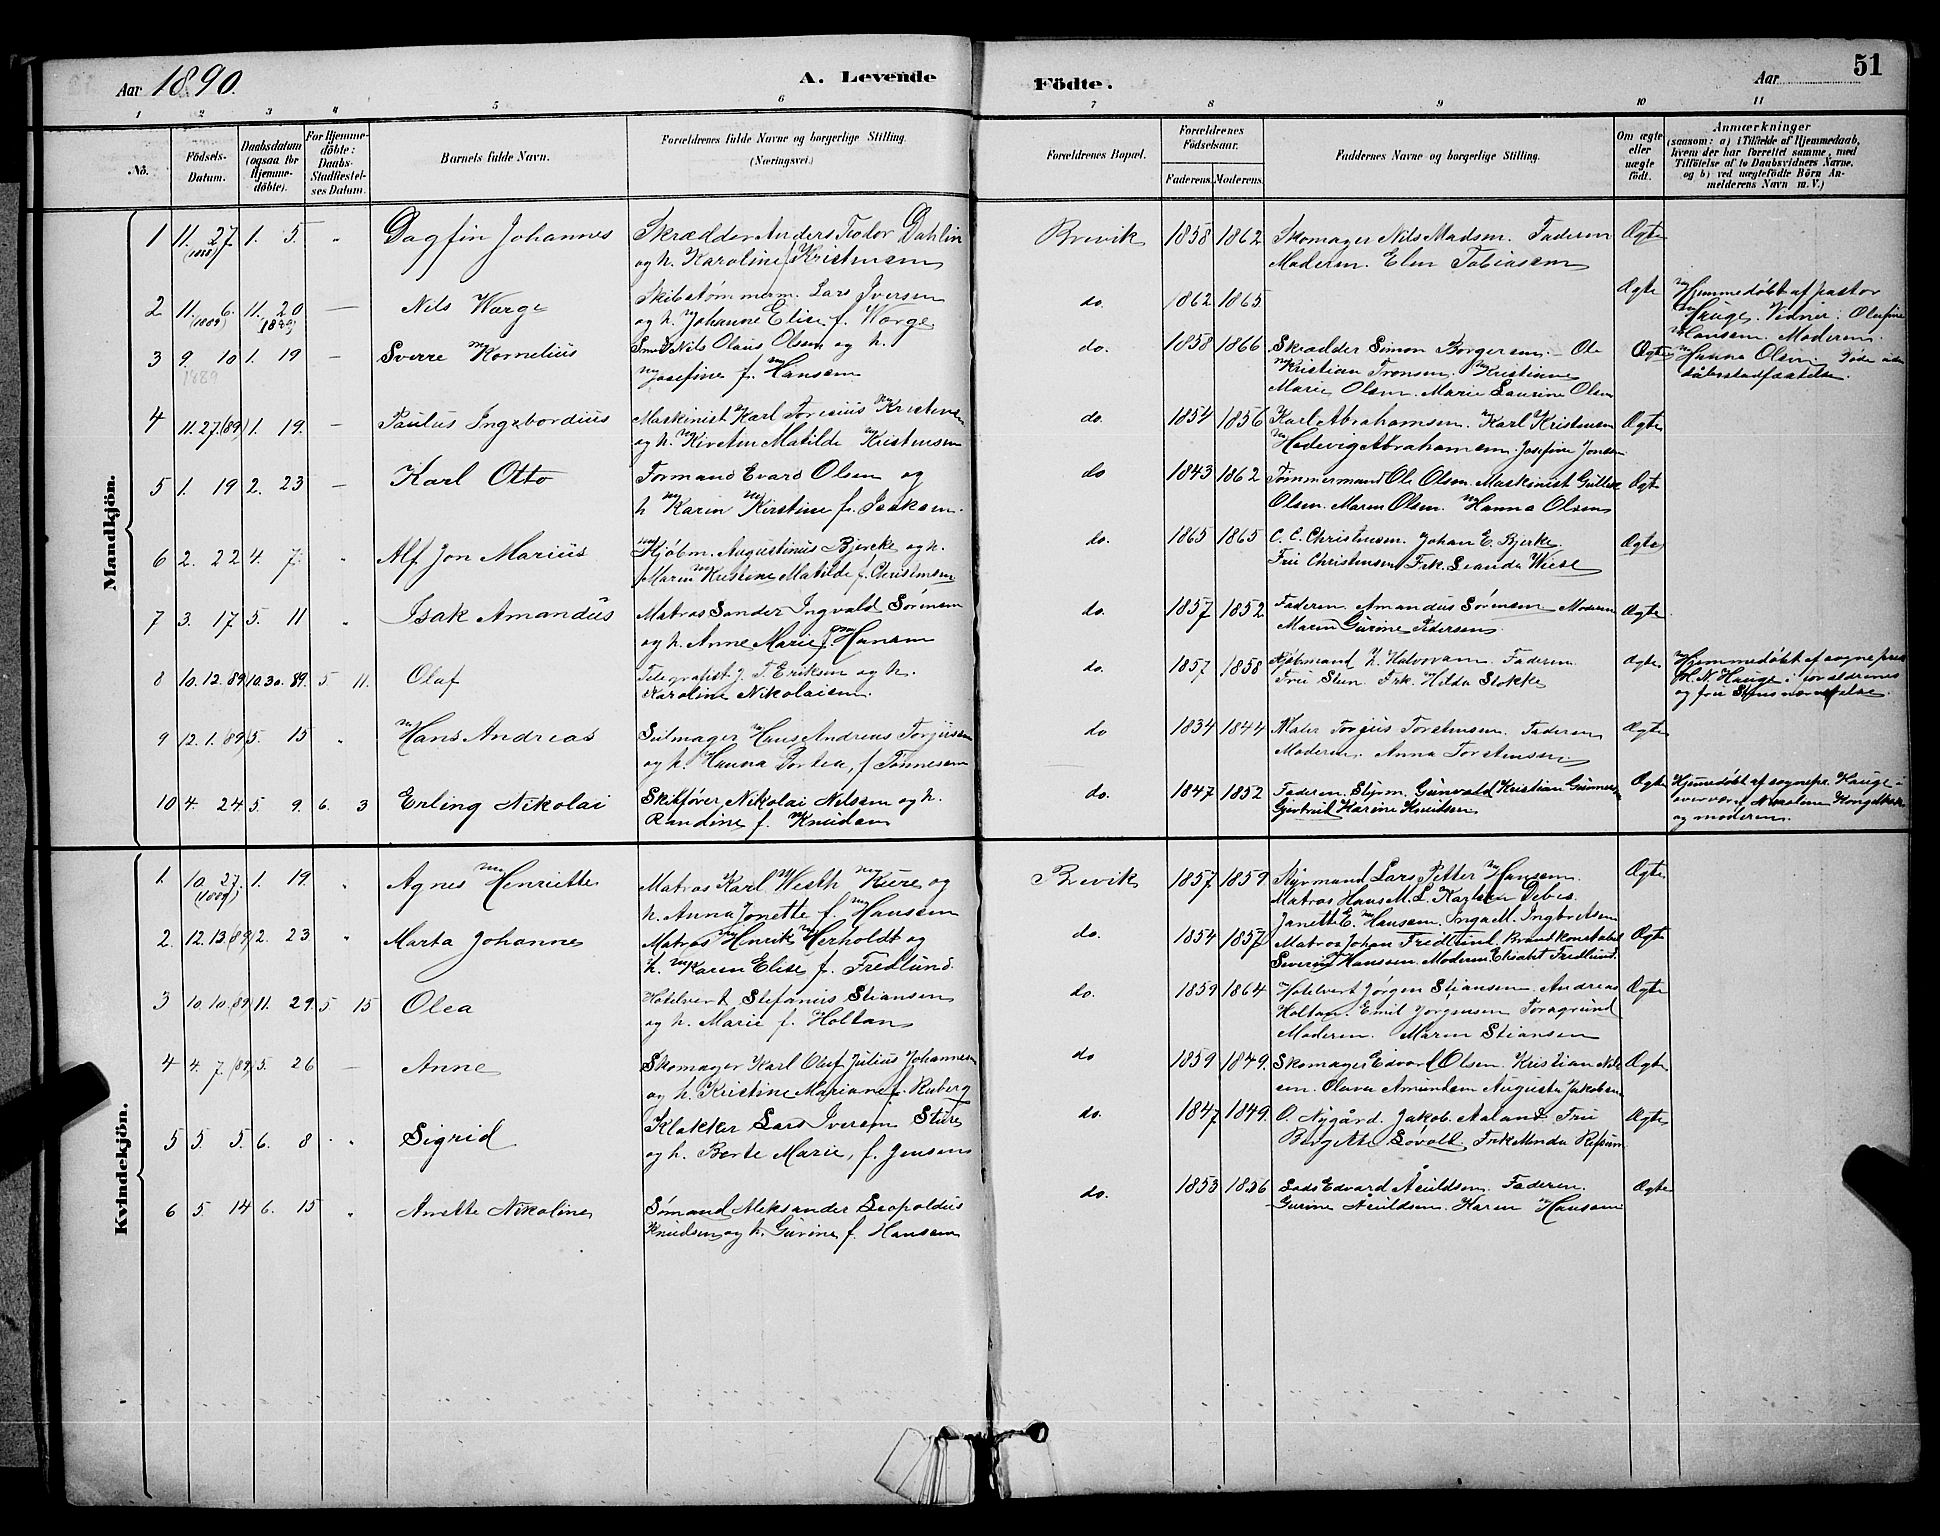 Aar 1890.
A. Levende
Födte.
Aar
51
1 2 3 4 5 6 7 8 9 10 11
No.
Födsels-Datum.
Daabsdatum (ogsaa for Hjemme-döbte).
For Hjemme-döbte: Daabs-Stadfæstel-ses Datum.
Barnets fulde Navn.
Forældrenes fulde Navne og borgerlige Stilling.
(Næringsvei.)
Forældrenes Bopæl.
Forældrenes Födselsaar.
Faderens. Moderens.
Faddernes Navne og borgerlige Stilling.
Om ægte eller uægte födt.
Anmærkninger
(saasom: a) i Tilfælde af Hjemmedaab, hvem der har forrettet samme, med Tilföielse af to Daabsvidners Navne, og b) ved uægtefödte Börn An-melderens Navn m. V.)
Mandkjön.
1 11. 27. 1. 5. " Dagfin Johannes Skrædder Anders Teodor Dahlin Brevik 1858 1862 Skomager Nils Madsen. Faderen Ægte
og h. Karoline f. Kristensen Moderen. Elen Tobiasen
2 11. 6. (1889) 11. 20 1889 — Nils Warge Skibstømmerm. Lars Iversen do. 1862 1865 Ægte Hjemmedøbt af pastor
og h. Johanne Elise f. Warge Hauge. Vidner: Olufine
Hansen. Moderen.
3 9. 10 1889 1. 19 — Sverre Kornelius Smed Nils Olaus Olsen og h. do. 1858 1866 Skrædder Simon Borgersen. Ole Ægte Hanna Olsen.
Josefine f. Hansen Kristian Tronsen. Kristiane
Marie Olsen. Marie Laurine Olsen
4 11. 27. (89) 1. 19. — Paulus Ingebordius Maskinist Karl Kristensen do. 1854 1856 Karl Abrahamsen. Karl Kristensen Ægte
og h. Kirsten Matilde Kristensen Hedevig Abrahamsen. Josefine Jonsen
5 1. 19 2. 23 — Karl Otto Formand Evard Olsen og do 1843 1862 Tømmermand Ole Olsen. Maskinist Gullik Ægte
h Karin Kirstine f. Isaksen. Olsen. Maren Olsen. Hanna Olsen
6 2. 22 4. 7. " Alf Jon Marius Kjøbm. Augustinus Bjerke og h. do. 1865 1865 C. C. Christensen. Johan E. Bjerke. Ægte
Maren Kristine Matilde f. Christensen Fru Christensen Frk. Svanda Wiese
7 3. 17 5. 11 " Isak Amandus Matros Sander Ingvald Sørensen do. 1857 1852 Faderen. Amandus Sørensen Moderen Ægte.
og h. Anne Marie f. Hansen Maren Gurine Pedersen
8 10. 12. 89 10. 30. 89. 5 11. Olaf Telegrafist J. T. Eriksen og h. do. 1857 1858 Kjøbmand H. Halvorsen. Faderen. Ægte. Hjemmedøbt af sogneprest
Karoline Nikolaisen. Fru Steen. Frk. Hilda Stokke M. N. Hauge i forældrenes
og fru Stens nærværelse.
9 12. 1. 89 5. 15 " Hans Andreas Seilmager Hans Andreas Torjusen do 1834 1844 Maler Torgius Torstensen. Faderen Ægte
og h. Hanna Tortea, f. Tønnesen Moderen. Anna Torstensen
10 4. 24 5. 9. 6. 3 Erling Nikolai Skibfører Nikolai Nilsen og h. do. 1847 1852 Faderen. Styrm. Gunvald Kristian Ægte Hjemmedøbt af sognepr. Hauge i
Randine f. Knudsen Gjertrud Karine Knudsen overvær af Nikoline
og moderen.
Kvindekjön.
1. 10. 27. (1889) 1. 19. " Agnes Henriette Matros Karl Westh Kure og Brevik 1857 1859 Styrmand Lars Petter Hansen. Ægte
h. Anna Jonette f. Hansen Matros Hans M. L. Karlsen Debes.
Janette E. Hansen. Inga M. Ingbretsen
2. 12. 13. 89 2. 23 " Marta Johanne Matros Henrik Herholdt og do. 1854 1857 Matros Johan Fredlund. Brandkonstabel Ægte
h. Karen Elise f. Fredlund. Severin Hansen. Moderen. Elisabet Fredlund.
3 10. 10. (89) 11. 29. 5 15 Olea Hotelvert Stefanus Stiansen do. 1859 1864 Hotelvert Jørgen Stiansen. Andreas Ægte
og h. Marie f. Holtan Holtan. Emil Jørgensen Toragrund
Moderen. Maren Stiansen
4 4. 7. (89) 5. 26 — Anne Skomager Karl Oluf Julius Johannesen do 1859 1849. Skomager Edvard Olsen. Kristian Nil- Ægte
og h. Kristine Mariane f. Ruberg sen. Olava Amundsen Augusta Jakobsen
5 5. 5. 6. 8 " Sigrid Klokker Lars Iversen Sture do. 1847 1849. O. Nygård. Jakob Aaland. Fru Ægte
og h. Berte Marie, f. Jensen Bergitte Løvoll. Frk Menda
6 5. 14 6. 15 " Anette Nikoline Sømand Aleksander Leopoldus do. 1853 1856 Lods Edvard Auldsen. Faderen. Ægte
Knudsen og h. Gurine f. Hansen Gurine Auldsen. Karen Hansen